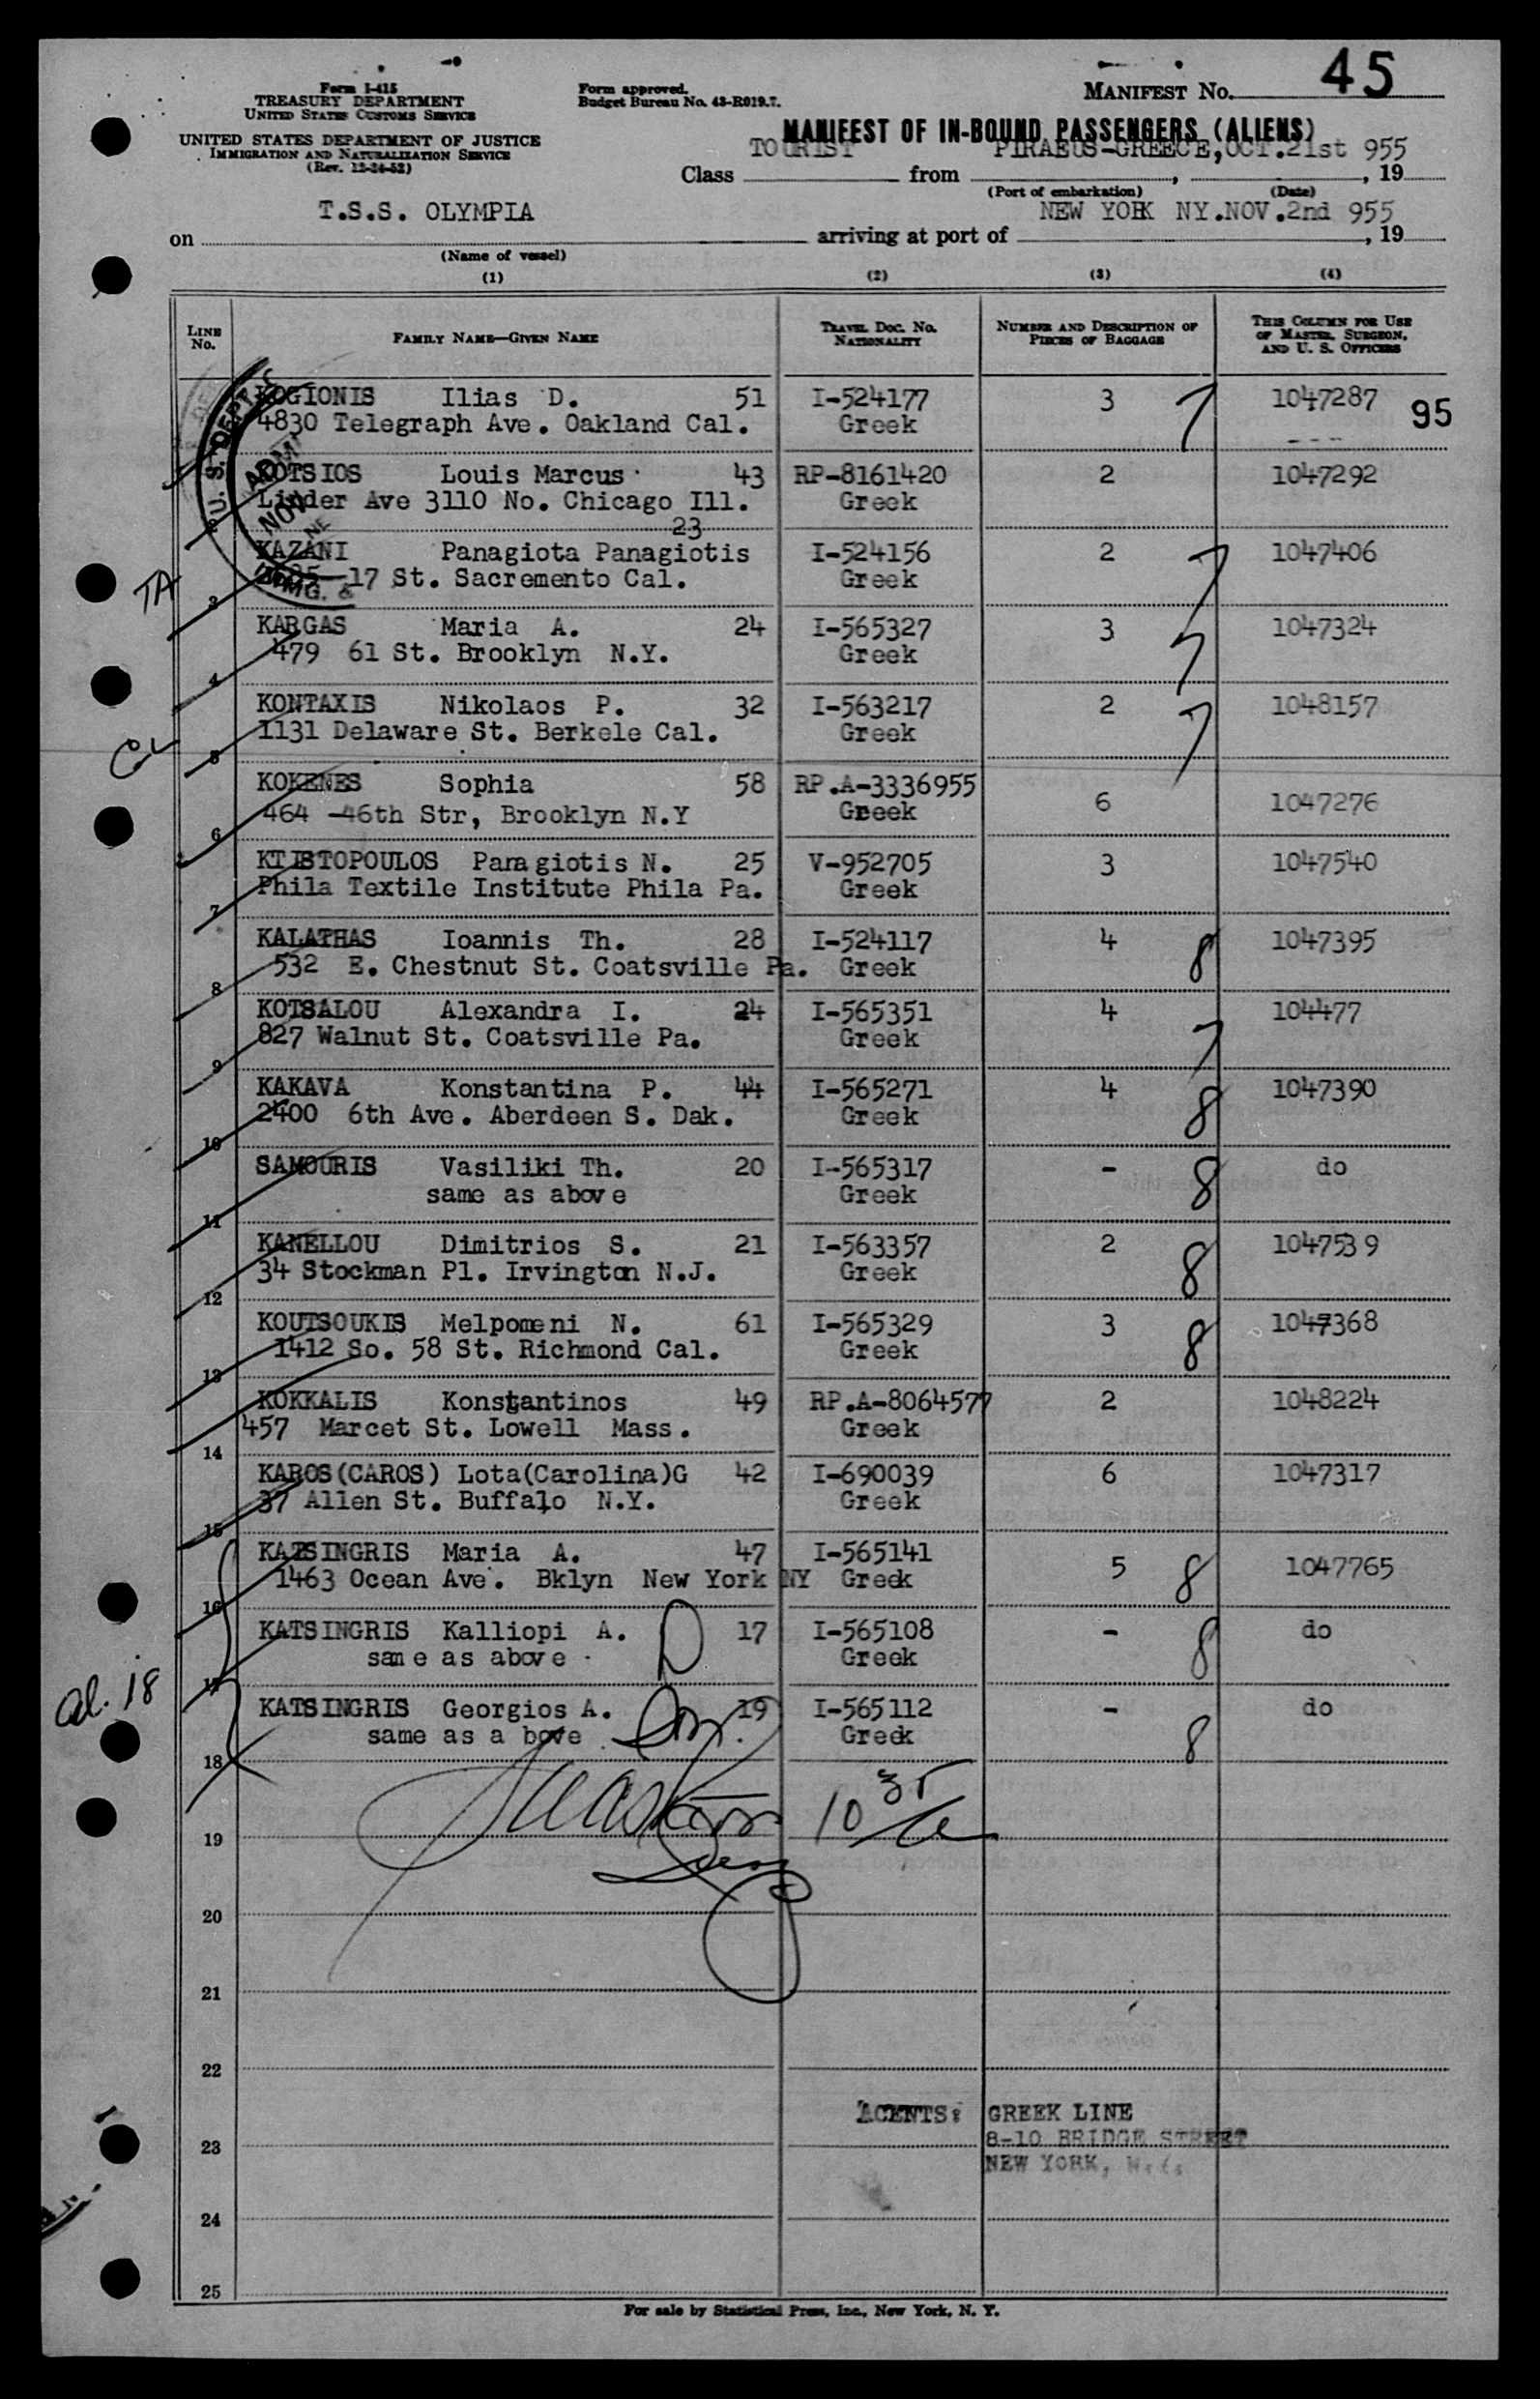 45
Form I-415
TREASURY DEPARTMENT
UNITED STATES CUSTOMS SERVICE
UNITED STATES DEPARTMENT OF JUSTICE
IMMIGRATION AND NATURALIZATION SERVICE
(Rev. 12-24-52)
Form approved.
Budget Bureau No. 43-R019.7.
MANIFEST No.
MANIFEST OF IN-BOUND PASSENGERS (ALIENS)
TOURIST PIRAEUS-GREECE, OCT.21st 955
Class from , , 19
(Port of embarkation) (Date)
T.S.S. OLYMPIA NEW YORK NY.NOV.2nd 955
on arriving at port of , 19
(Name of vessel)
(1) (2) (3) (4)
LINE No. FAMILY NAME—GIVEN NAME TRAVEL DOC. No. NATIONALITY NUMBER AND DESCRIPTION OF PIECES OF BAGGAGE THIS COLUMN FOR USE OF MASTER, SURGEON, AND U. S. OFFICERS
KOGIONIS Ilias D. 51 I-524177 3 7 1047287 95
4830 Telegraph Ave. Oakland Cal. Greek
U. S. DEPT.
ADM
NOV
IMMG. &
KOTSIOS Louis Marcus 43 RP-8161420 2 1047292
Linder Ave 3110 No. Chicago Ill. Greek
2 23
KAZANI Panagiota Panagiotis I-524156 2 7 1047406
17 St. Sacremento Cal. Greek
TA
3
KARGAS Maria A. 24 I-565327 3 7 1047324
479 61 St. Brooklyn N.Y. Greek
4
KONTAXIS Nikolaos P. 32 I-563217 2 7 1048157
1131 Delaware St. Berkele Cal. Greek
5
KOKENES Sophia 58 RP.A-3336955 6 1047276
464 -46th Str, Brooklyn N.Y Greek
6
KTISTOPOULOS Panagiotis N. 25 V-952705 3 1047540
Phila Textile Institute Phila Pa. Greek
7
KALATHAS Ioannis Th. 28 I-524117 4 8 1047395
532 E. Chestnut St. Coatsville Pa. Greek
8
KOTSALOU Alexandra I. 24 I-565351 4 7 104477
827 Walnut St. Coatsville Pa. Greek
9
KAKAVA Konstantina P. 44 I-565271 4 8 1047390
2400 6th Ave. Aberdeen S. Dak. Greek
10
SAMOURIS Vasiliki Th. 20 I-565317 - 8 do
same as above Greek
11
KANELLOU Dimitrios S. 21 I-563357 2 8 1047539
34 Stockman Pl. Irvington N.J. Greek
12
KOUTSOUKIS Melpomeni N. 61 I-565329 3 8 1047368
1412 So. 58 St. Richmond Cal. Greek
13
KOKKALIS Konstantinos 49 RP.A-8064577 2 1048224
457 Marcet St. Lowell Mass. Greek
14
KAROS(CAROS) Lota(Carolina)G 42 I-690039 6 1047317
37 Allen St. Buffalo N.Y. Greek
15
KATSINGRIS Maria A. 47 I-565141 5 8 1047765
1463 Ocean Ave. Bklyn New York NY Greek
16
KATSINGRIS Kalliopi A. D 17 I-565108 - 8 do
same as above Greek
17
KATSINGRIS Georgios A. 19 I-565112 - 8 do
same as a bove Greek
18
10 35
19
20
21
22
AGENTS: GREEK LINE
23 8-10 BRIDGE STREET
NEW YORK,
24
25
For sale by Statistical Press, Inc., New York, N. Y.